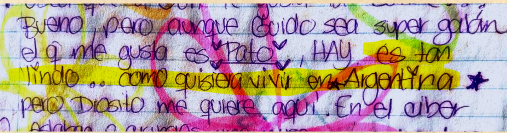 Bueno, pero aunque Guido sea super galán
el q me gusta es Pato, HAY es tan
lindo... como quisiera vivir en Argentina
pero Diosito me quiere aquí. En el ciber